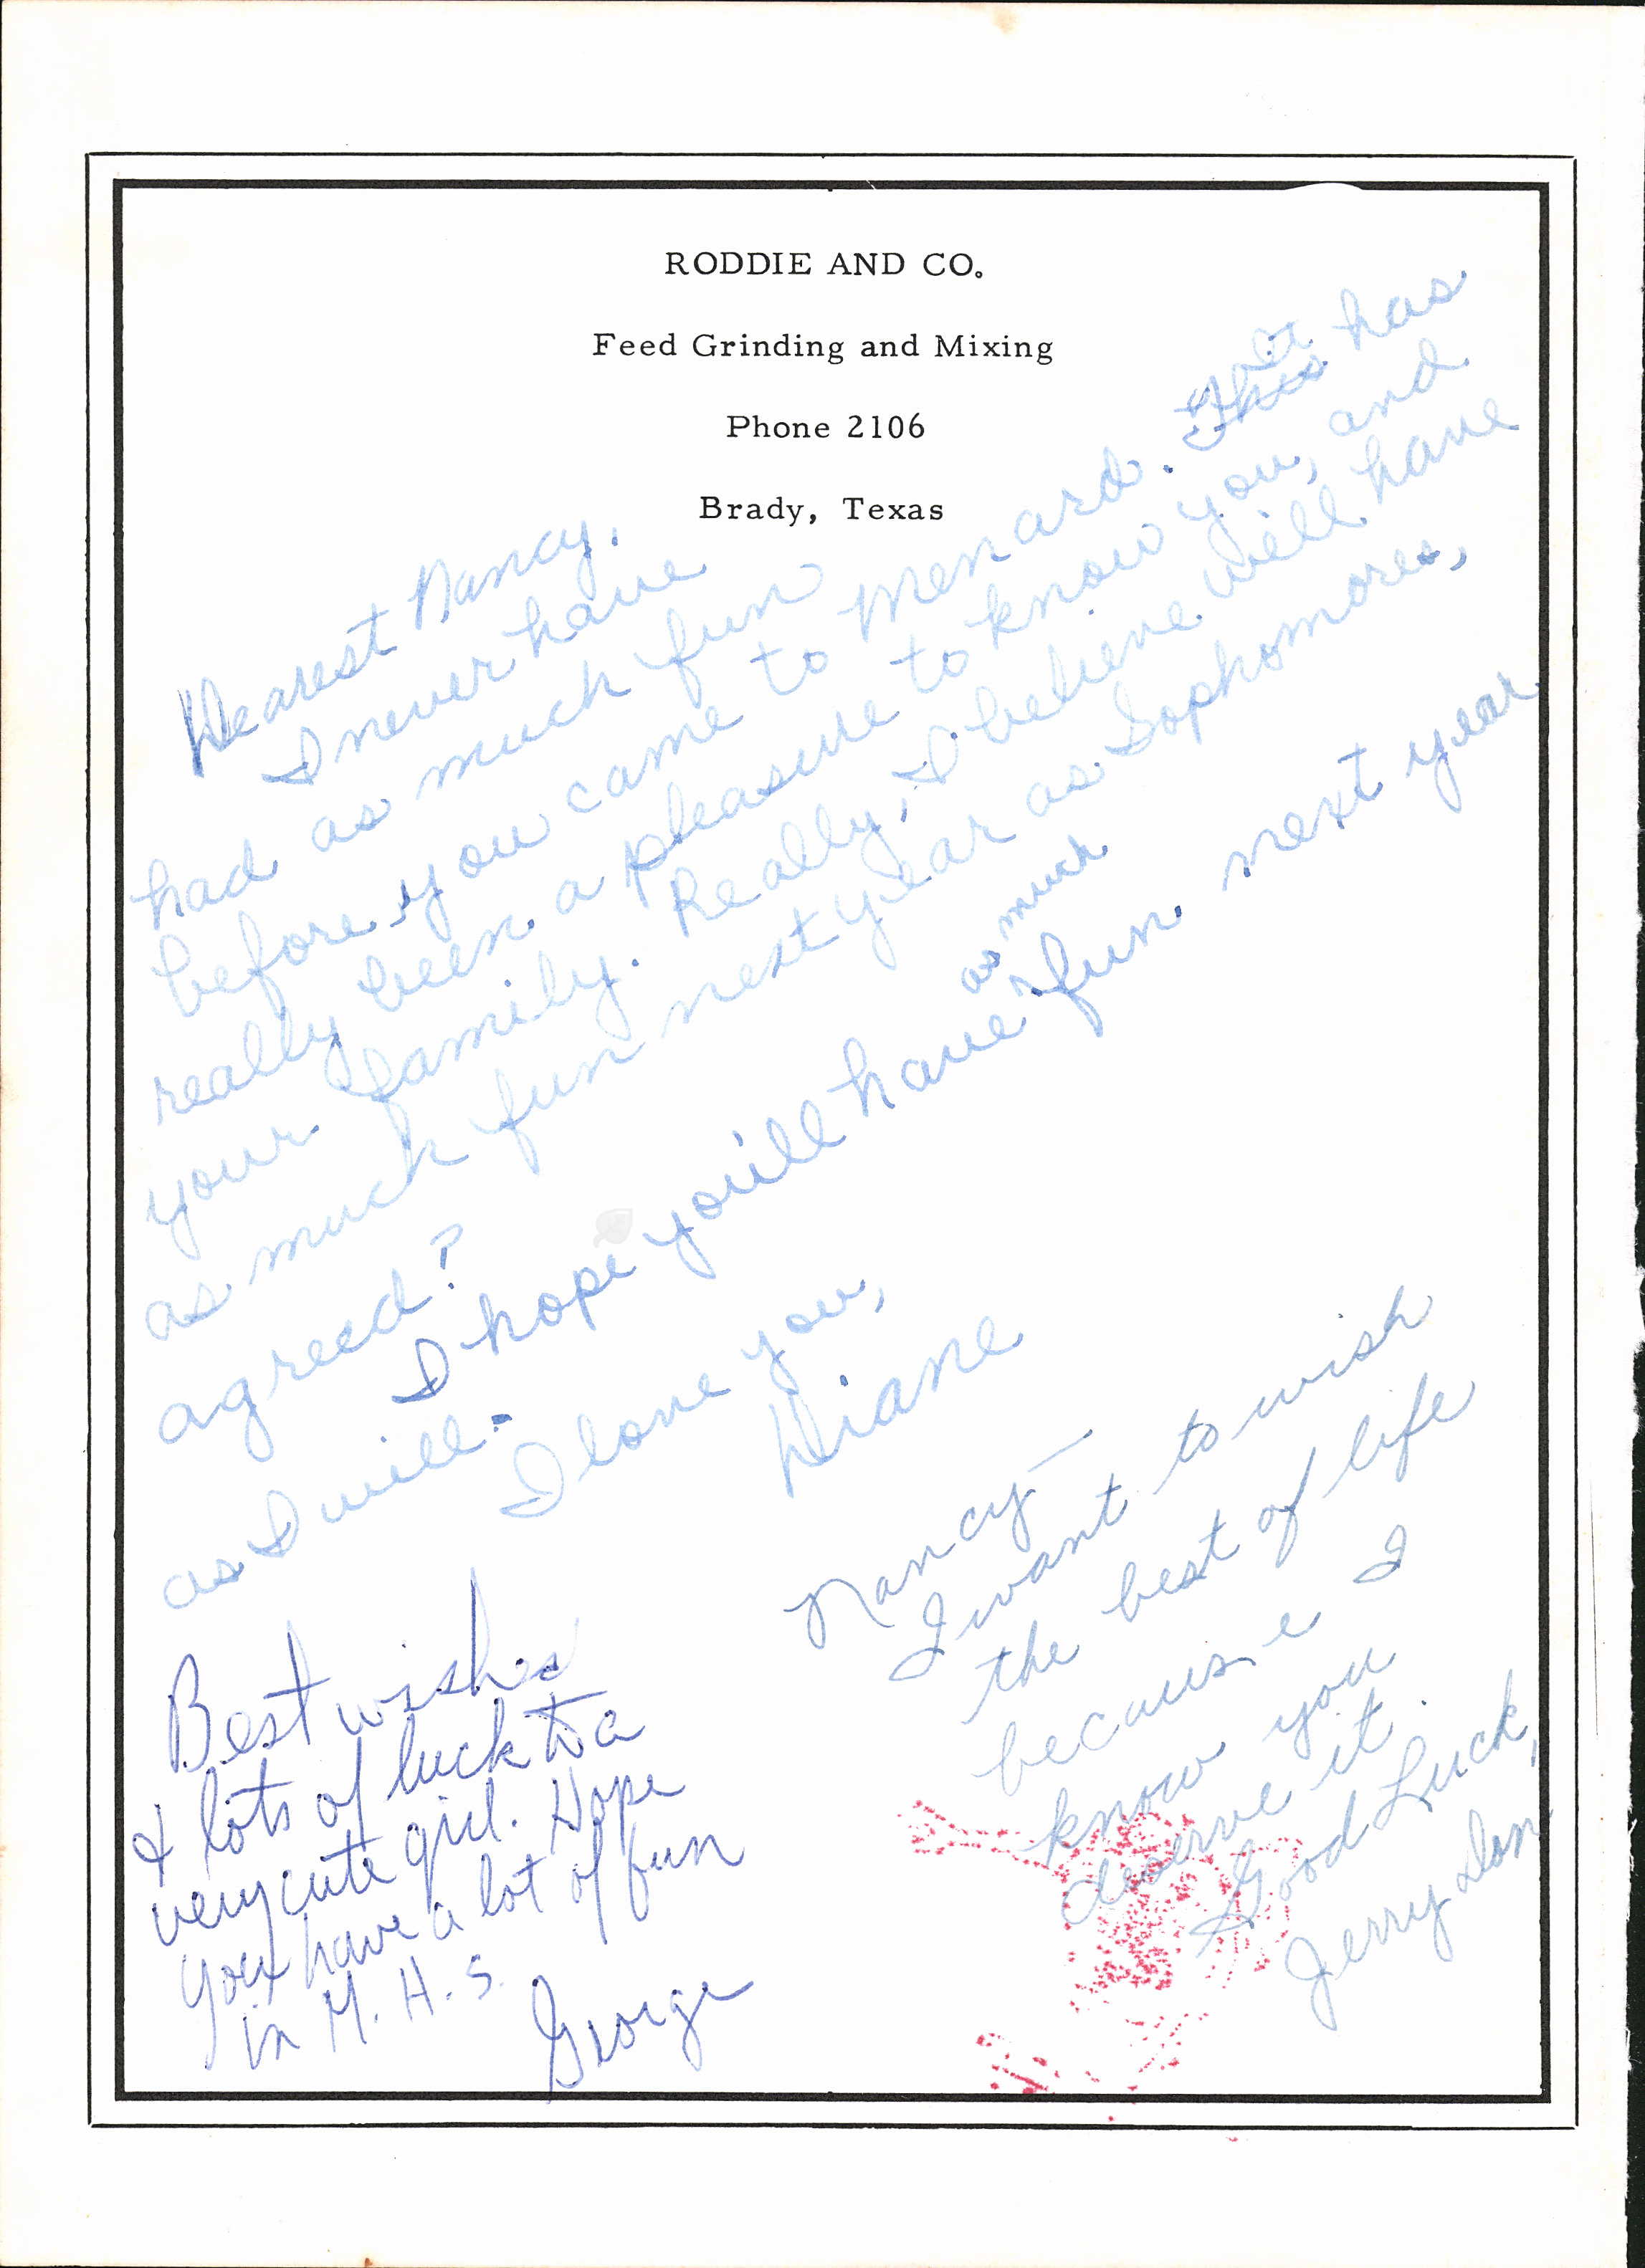 RODDIE AND CO.
Feed Grinding and Mixing
Phone 2106
Brady, Texas
Dearest Nancy,
I never have
had as much fun
before you came to Menard. It has
really been a pleasure to know you, and
your family. Really, I believe will have
as much fun next year as Sophomores,
agreed?
I hope you'll have as much fun next year
as I will.
I love you,
Diane
Nancy—
I want to wish
the best of life
because I
know you
deserve it.
Good Luck,
Jerry Don
Best wishes
& lots of luck to a
very cute girl. Hope
you have a lot of fun
in M. H. S.
George